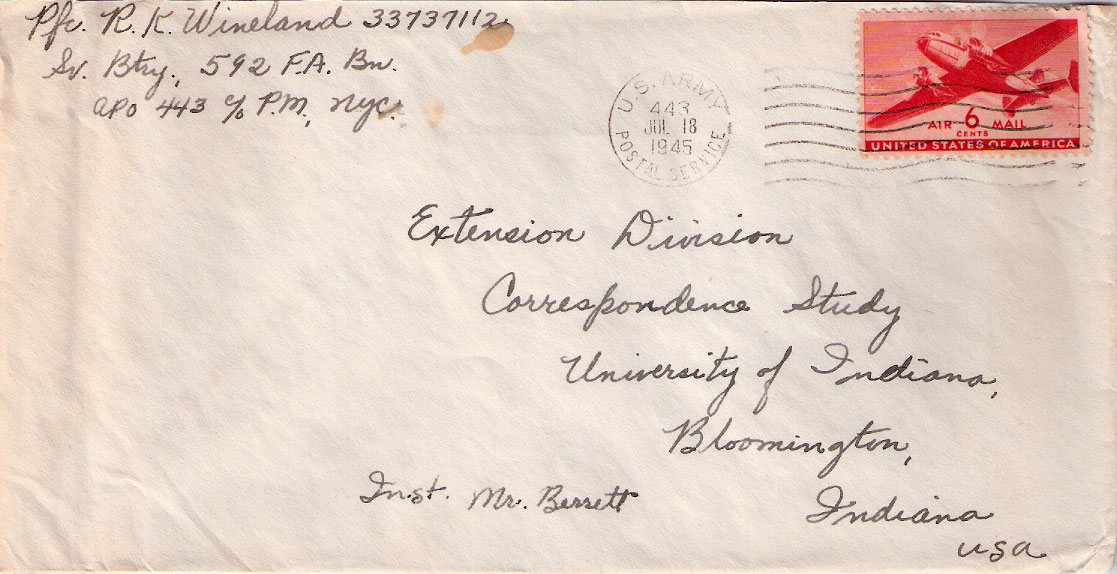 Pfc. R. K. Wineland 33737112
Sv. Btry., 592 F.A. Bn.
APO 443 c/o P.M., NYC.
U.S. ARMY
443
JUL 18
1945
POSTAL SERVICE
AIR 6 MAIL
CENTS
UNITED STATES OF AMERICA
Extension Division
Correspondence Study
University of Indiana,
Bloomington,
Inst. Mr. Berrett
Indiana
USA